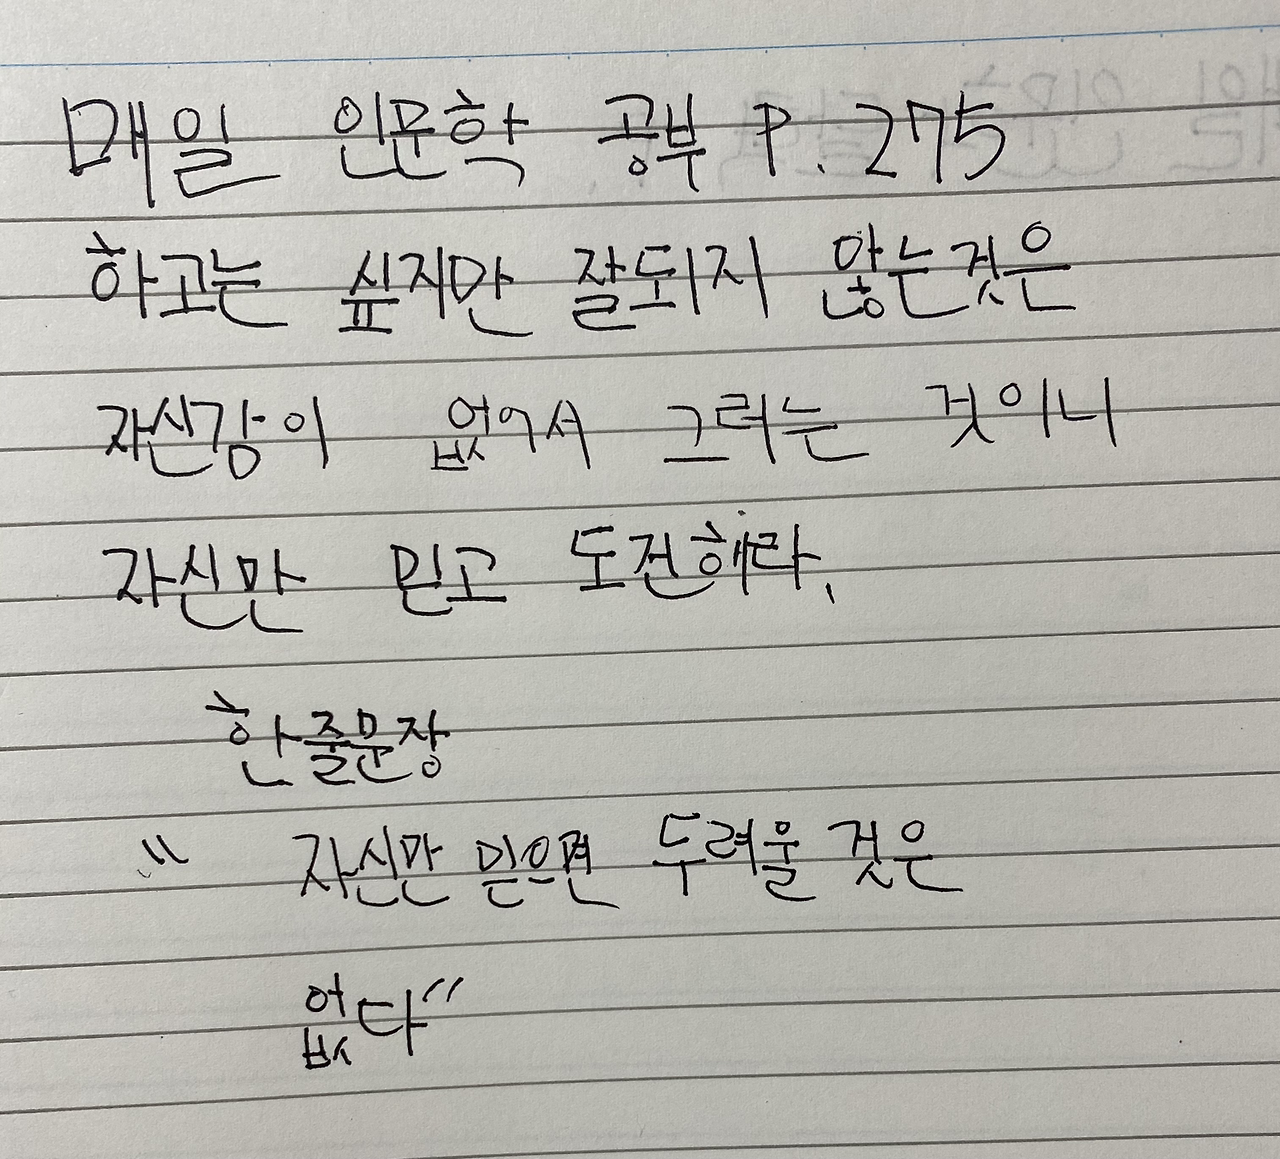 매일 인문학 공부 P. 275
하고는 싶지만 잘되지 않는것은
자신감이 없어서 그러는 것이니
자신만 믿고 도전해라.
한줄문장
" 자신만 믿으면 두려울 것은
없다"